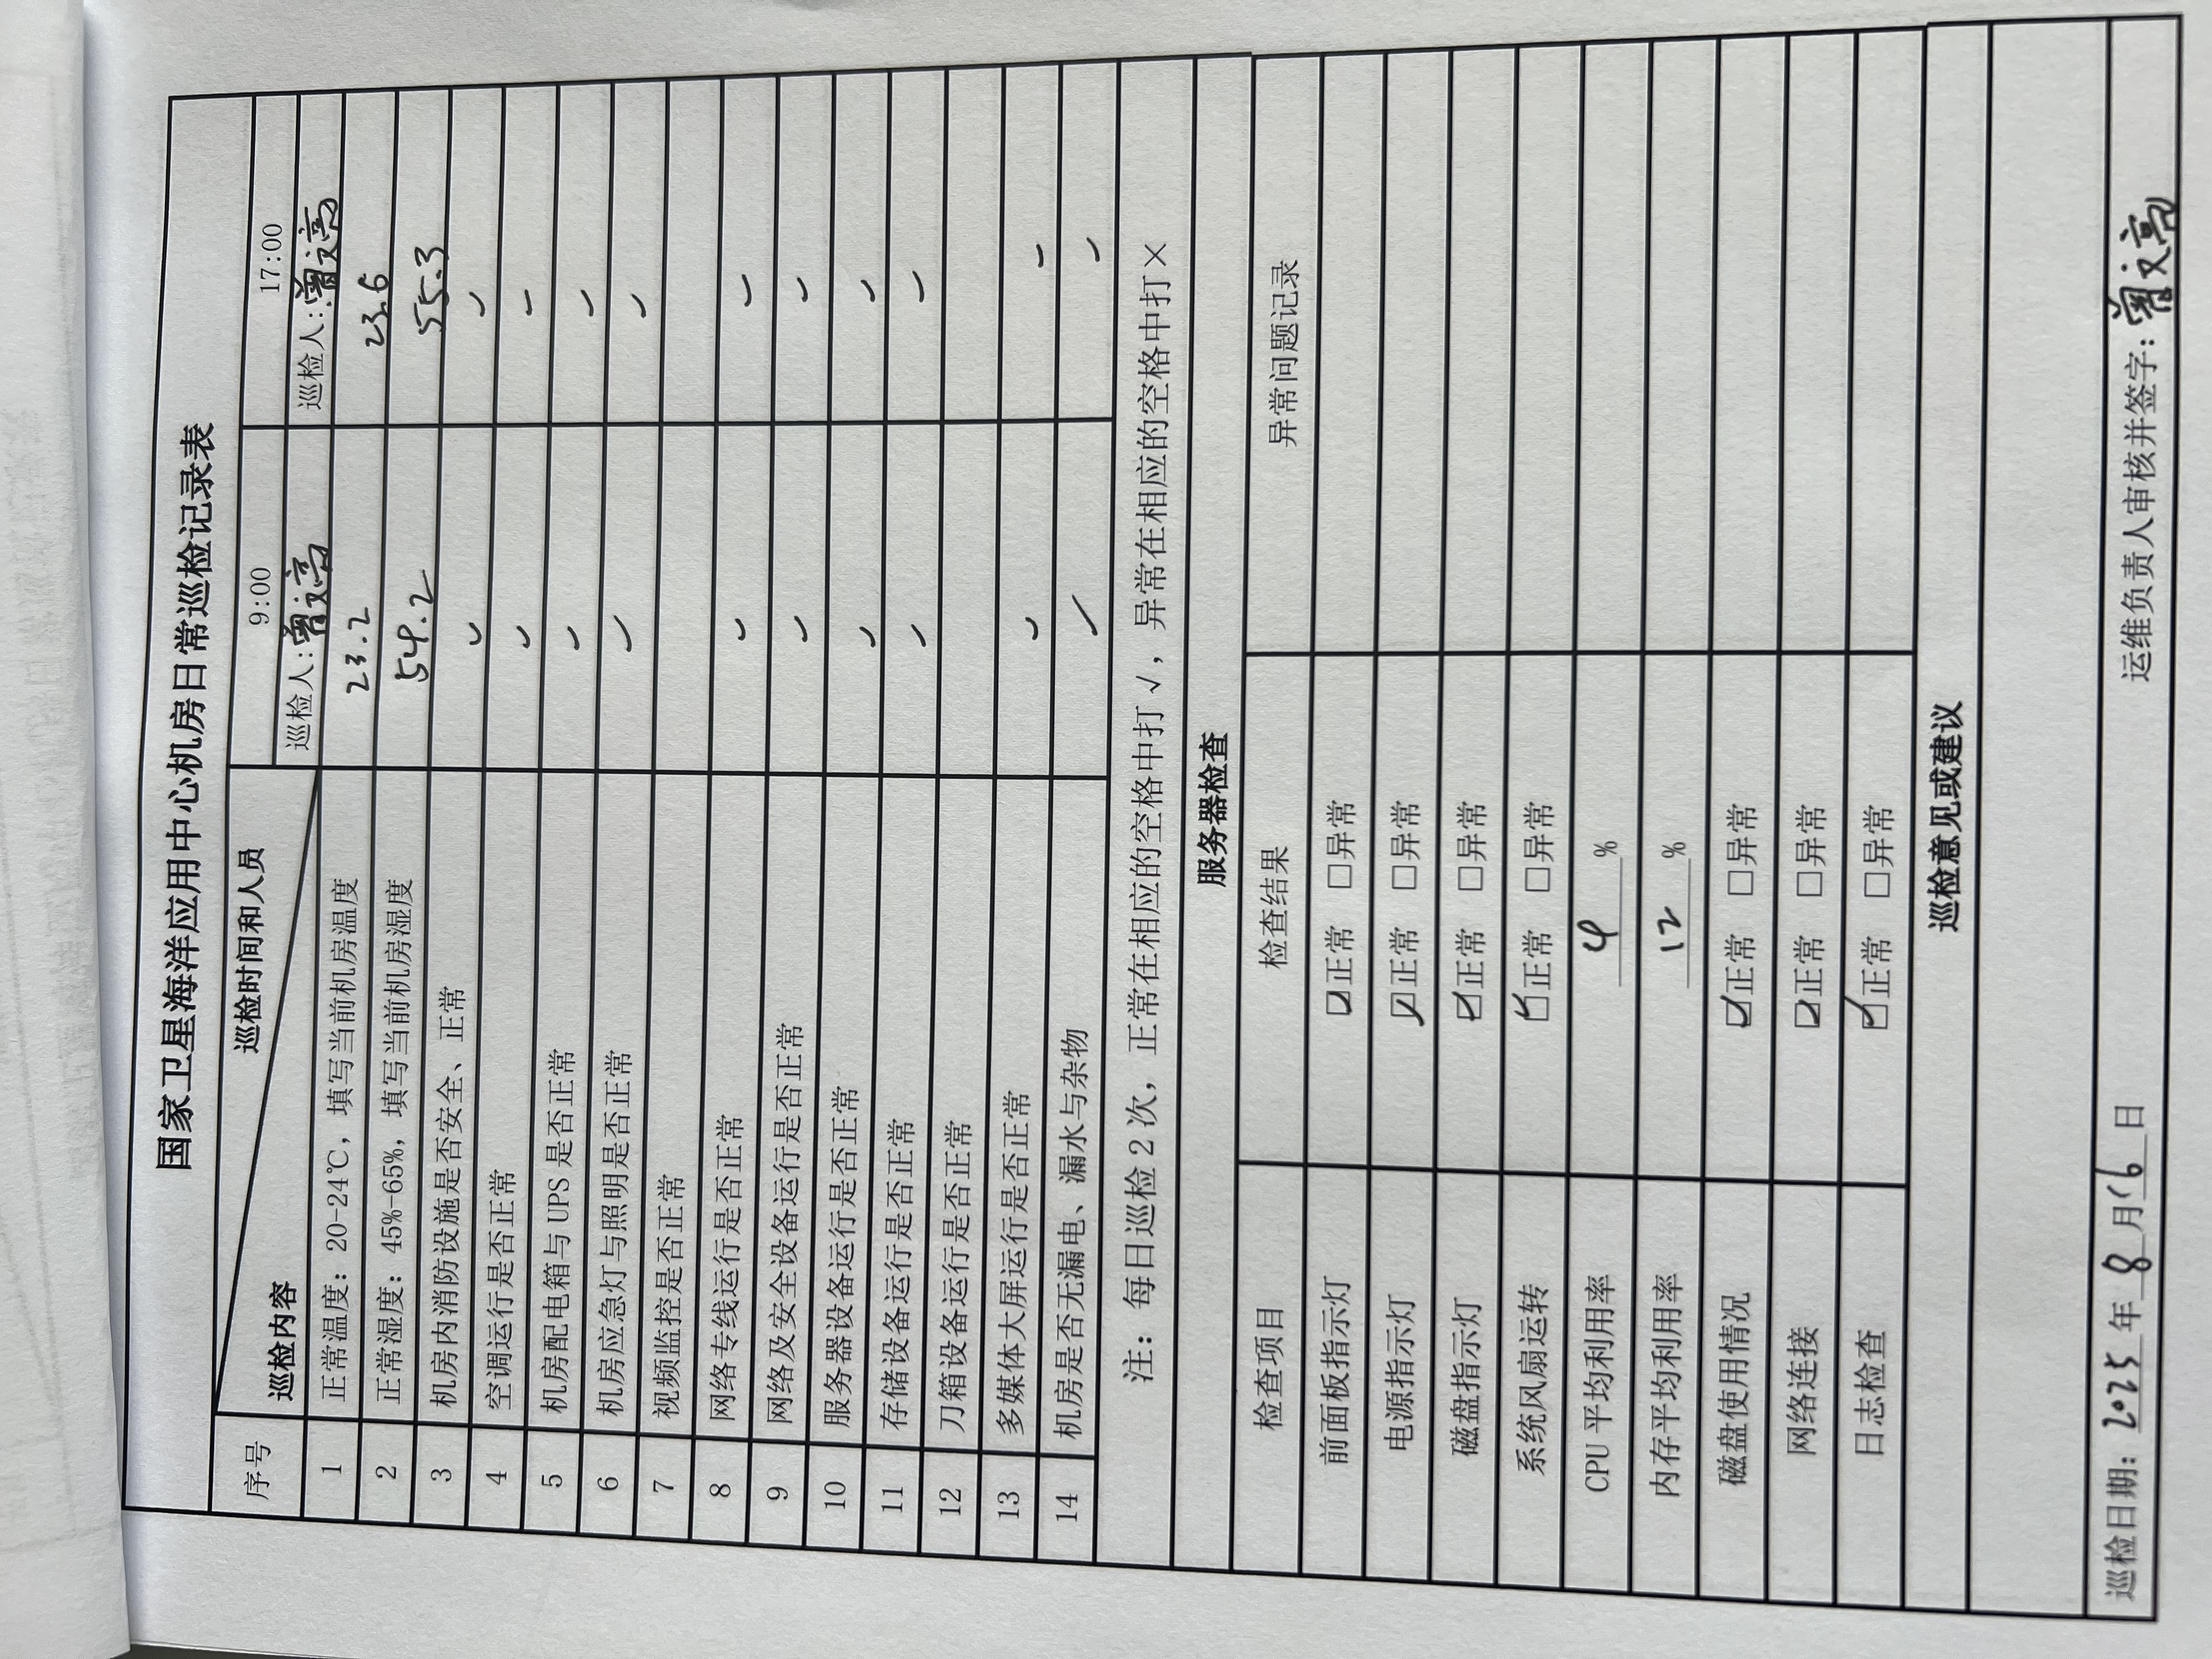 国家卫星海洋应用中心机房日常巡检记录表
序号 巡检内容 巡检时间和人员 9:00 17:00
巡检人:曾文亮 巡检人:曾文亮
1 正常温度：20-24℃，填写当前机房温度 23.2 23.6
2 正常湿度：45%-65%，填写当前机房湿度 54.2 55.3
3 机房内消防设施是否安全、正常 ✓ ✓
4 空调运行是否正常 ✓ ✓
5 机房配电箱与 UPS 是否正常 ✓ ✓
6 机房应急灯与照明是否正常 ✓ ✓
7 视频监控是否正常
8 网络专线运行是否正常 ✓ ✓
9 网络及安全设备运行是否正常 ✓ ✓
10 服务器设备运行是否正常 ✓ ✓
11 存储设备运行是否正常 ✓ ✓
12 刀箱设备运行是否正常
13 多媒体大屏运行是否正常 ✓ ✓
14 机房是否无漏电、漏水与杂物 ✓ ✓
注：每日巡检 2 次，正常在相应的空格中打√，异常在相应的空格中打×
服务器检查
检查项目 检查结果 异常问题记录
前面板指示灯 ☑正常 □异常
电源指示灯 ☑正常 □异常
磁盘指示灯 ☑正常 □异常
系统风扇运转 ☑正常 □异常
CPU 平均利用率 4 %
内存平均利用率 12 %
磁盘使用情况 ☑正常 □异常
网络连接 ☑正常 □异常
日志检查 ☑正常 □异常
巡检意见或建议
巡检日期：2025 年 8 月 16 日 运维负责人审核并签字：曾文亮